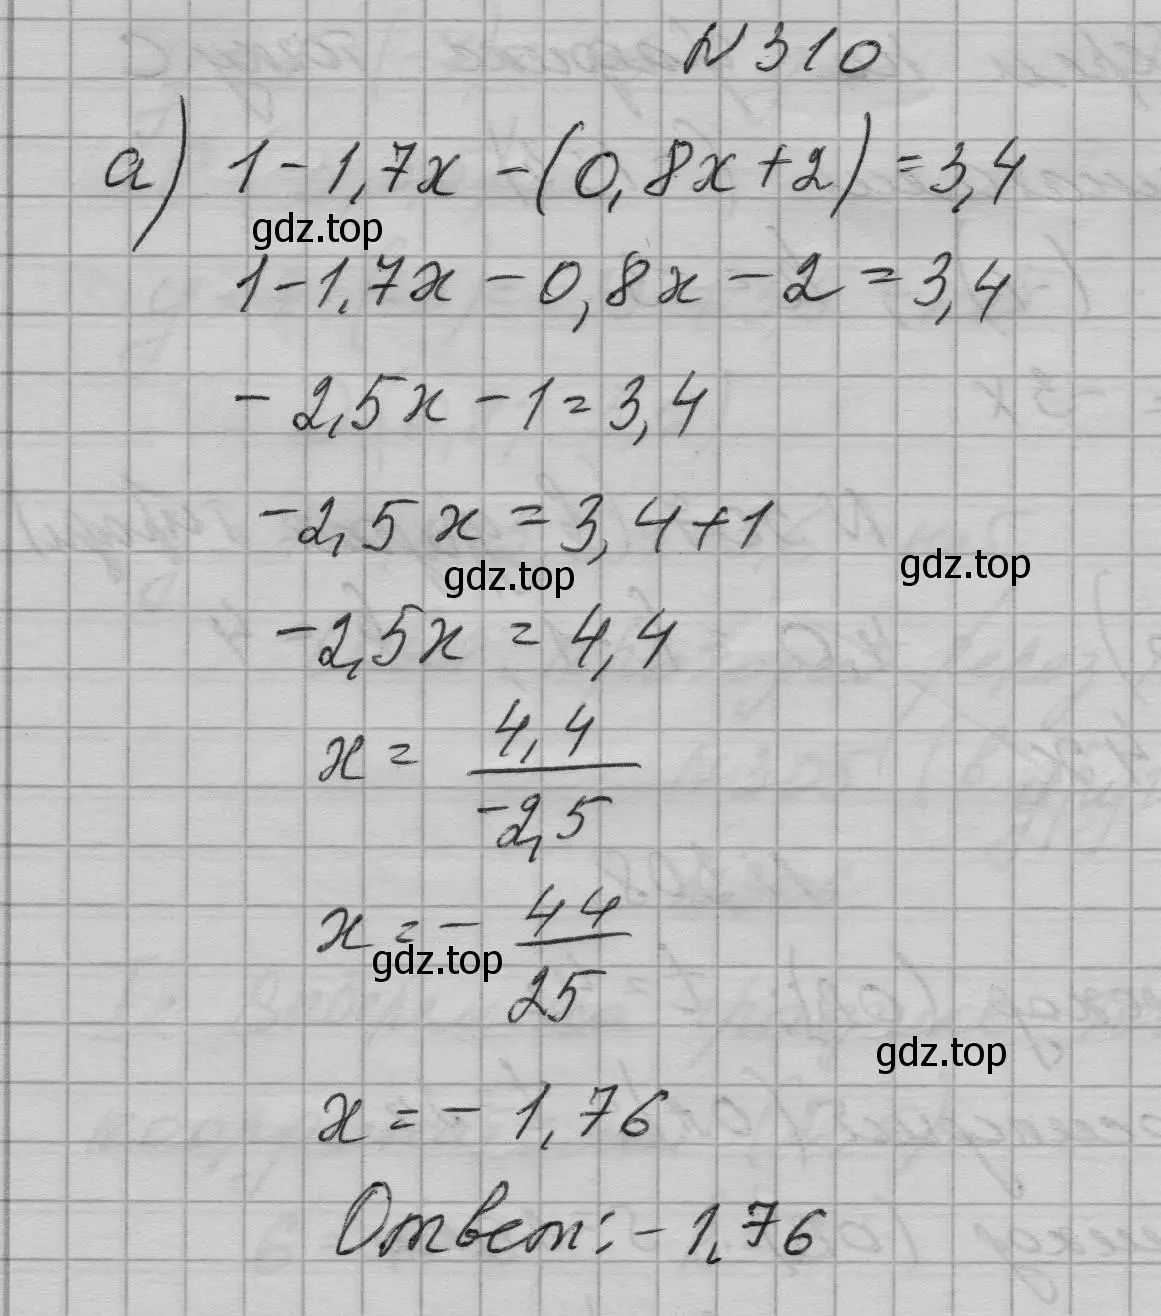 N 310
а) 1-1,7x-(0,8x+2)=3,4
gdz.top
1-1,7x-0,8x-2=3,4
-2,5x-1=3,4
-2,5x=3,4+1
gdz.top gdz.top
-2,5x=4,4
x= 4,4/-2,5
x=- 44/25
gdz.top
gdz.top
x=-1,76
Ответ: -1,76